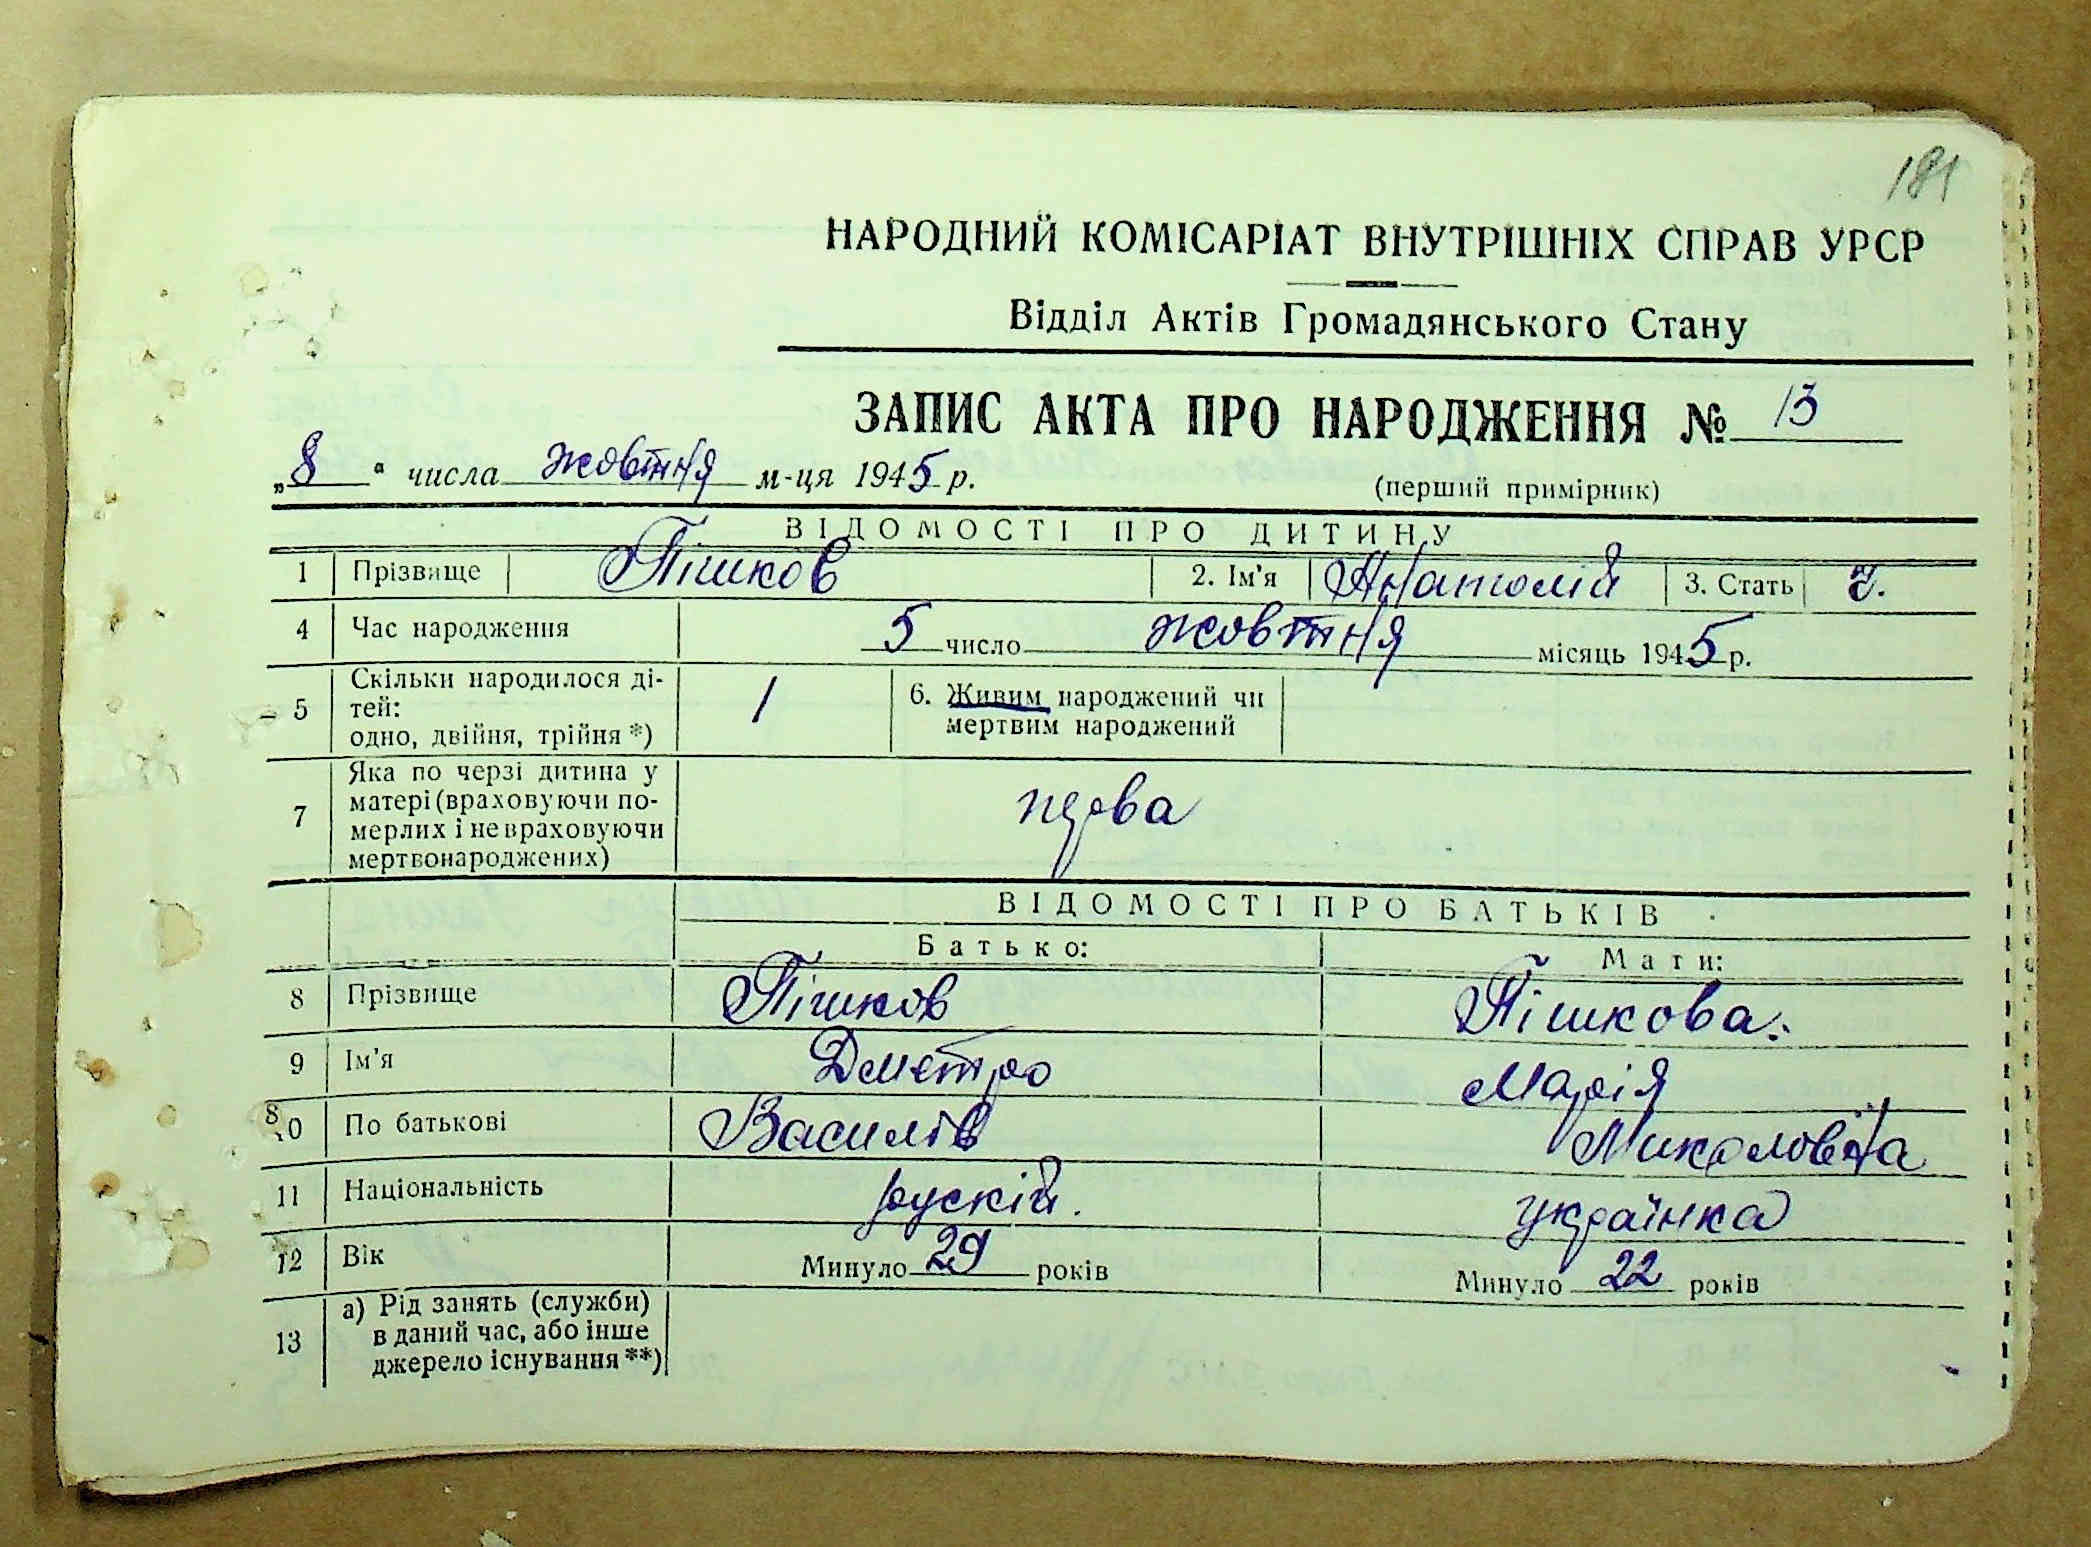 191
НАРОДНИЙ КОМІСАРІАТ ВНУТРІШНІХ СПРАВ УРСР
Відділ Актів Громадянського Стану
ЗАПИС АКТА ПРО НАРОДЖЕННЯ № 13
„8“ числа жовтня м-ця 1945 р. (перший примірник)
ВІДОМОСТІ ПРО ДИТИНУ
1 Прізвище Пішков 2. Ім'я Анатолій 3. Стать ч.
4 Час народження 5 число жовтня місяць 1945 р.
5 Скільки народилося ді-
тей:
одно, двійня, трійня *) 1 6. Живим народжений чи
мертвим народжений
7 Яка по черзі дитина у
матері (враховуючи по-
мерлих і не враховуючи
мертвонароджених) перва
ВІДОМОСТІ ПРО БАТЬКІВ
Батько: Мати:
8 Прізвище Пішков Пішкова.
9 Ім'я Дметро Марія
10 По батькові Василів Миколовна
11 Національність рускій. українка
12 Вік Минуло 29 років Минуло 22 років
13 а) Рід занять (служби)
в даний час, або інше
джерело існування **)